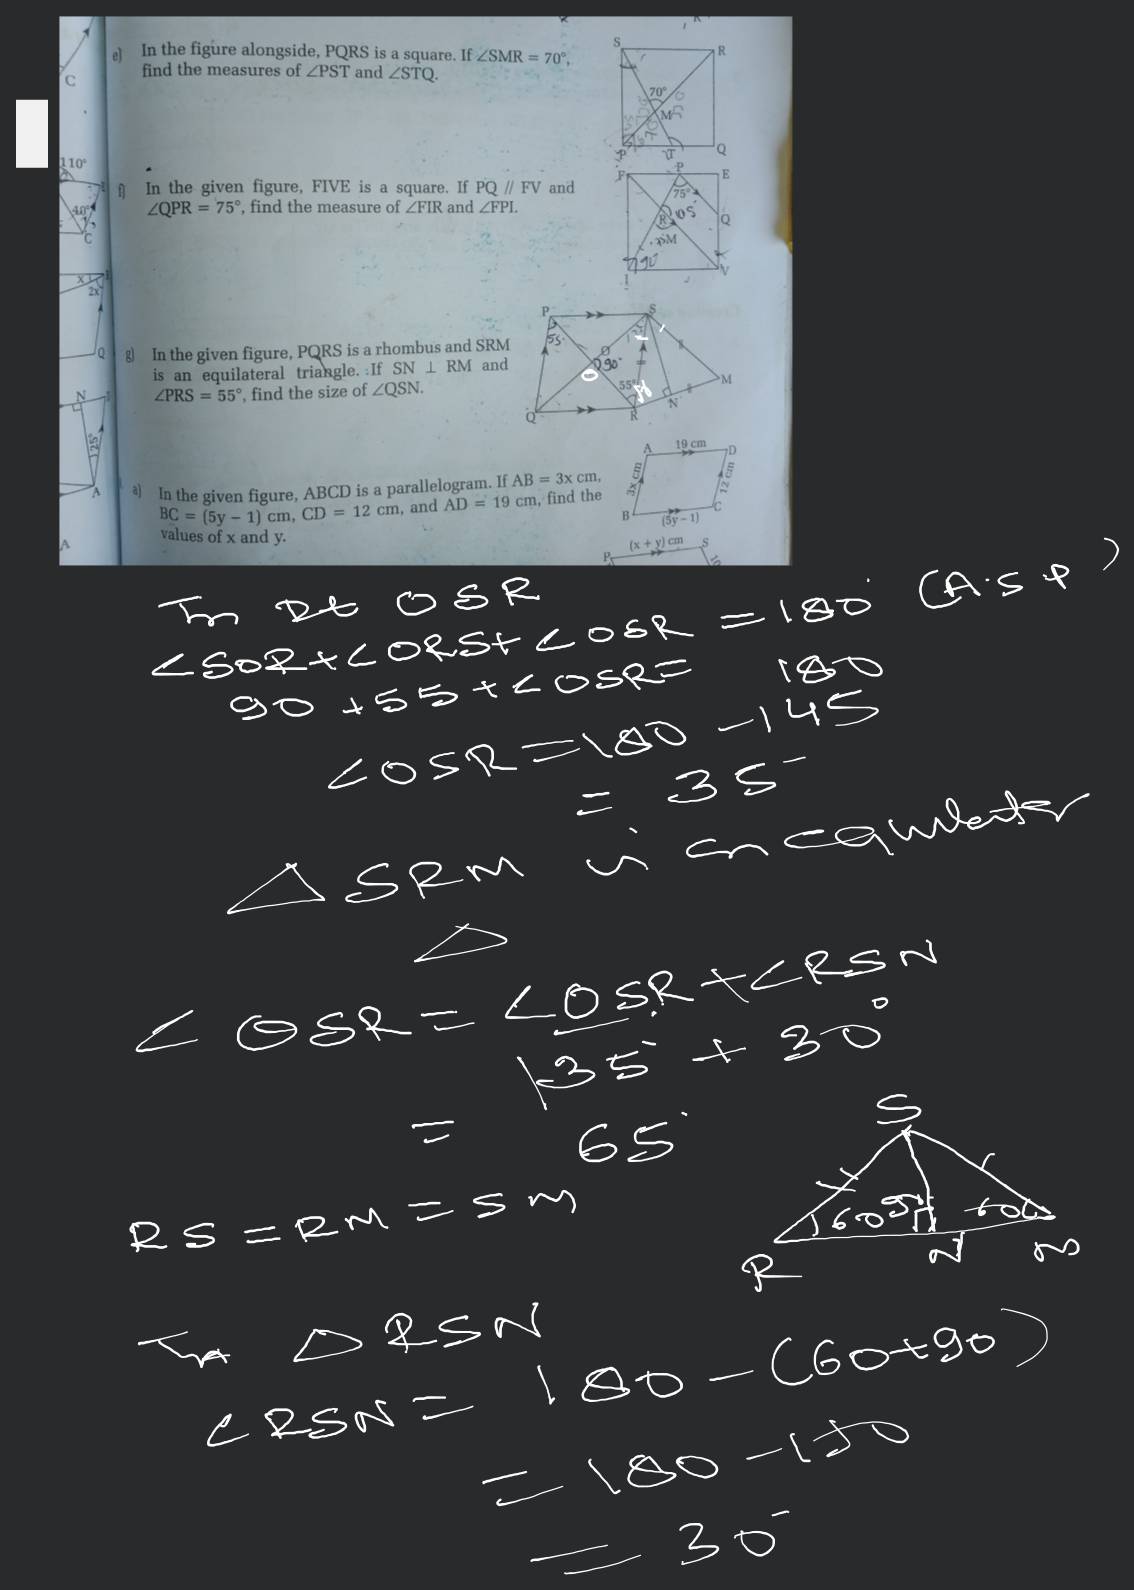 C
110°
40°
C
x
2x
Q
N
25°
A
A
e) In the figure alongside, PQRS is a square. If ∠SMR = 70°,
find the measures of ∠PST and ∠STQ.
S
R
70°
M
P
T
Q
f) In the given figure, FIVE is a square. If PQ // FV and
∠QPR = 75°, find the measure of ∠FIR and ∠FPI.
F
P
E
75°
R
105
Q
M
90
I
V
g) In the given figure, PQRS is a rhombus and SRM
is an equilateral triangle. If SN ⊥ RM and
∠PRS = 55°, find the size of ∠QSN.
P
S
55
O
90°
55°
M
N
Q
R
a) In the given figure, ABCD is a parallelogram. If AB = 3x cm,
BC = (5y – 1) cm, CD = 12 cm, and AD = 19 cm, find the
values of x and y.
A
19 cm
D
3x cm
12 cm
B
C
(5y – 1)
(x + y) cm
P
S
10
In Rt OSR
∠SOR+∠ORS+∠OSR = 180° (A.S.P)
90 + 55 + ∠OSR = 180
∠OSR = 180 - 145
= 35°
△ SRM is an
△
∠OSR = ∠OSR + ∠RSN
35° + 30°
= 65°
S
60
90
60
R
N
M
RS = RM = SM
In △ RSN
∠RSN = 180 - (60+90)
= 180 - 150
= 30°